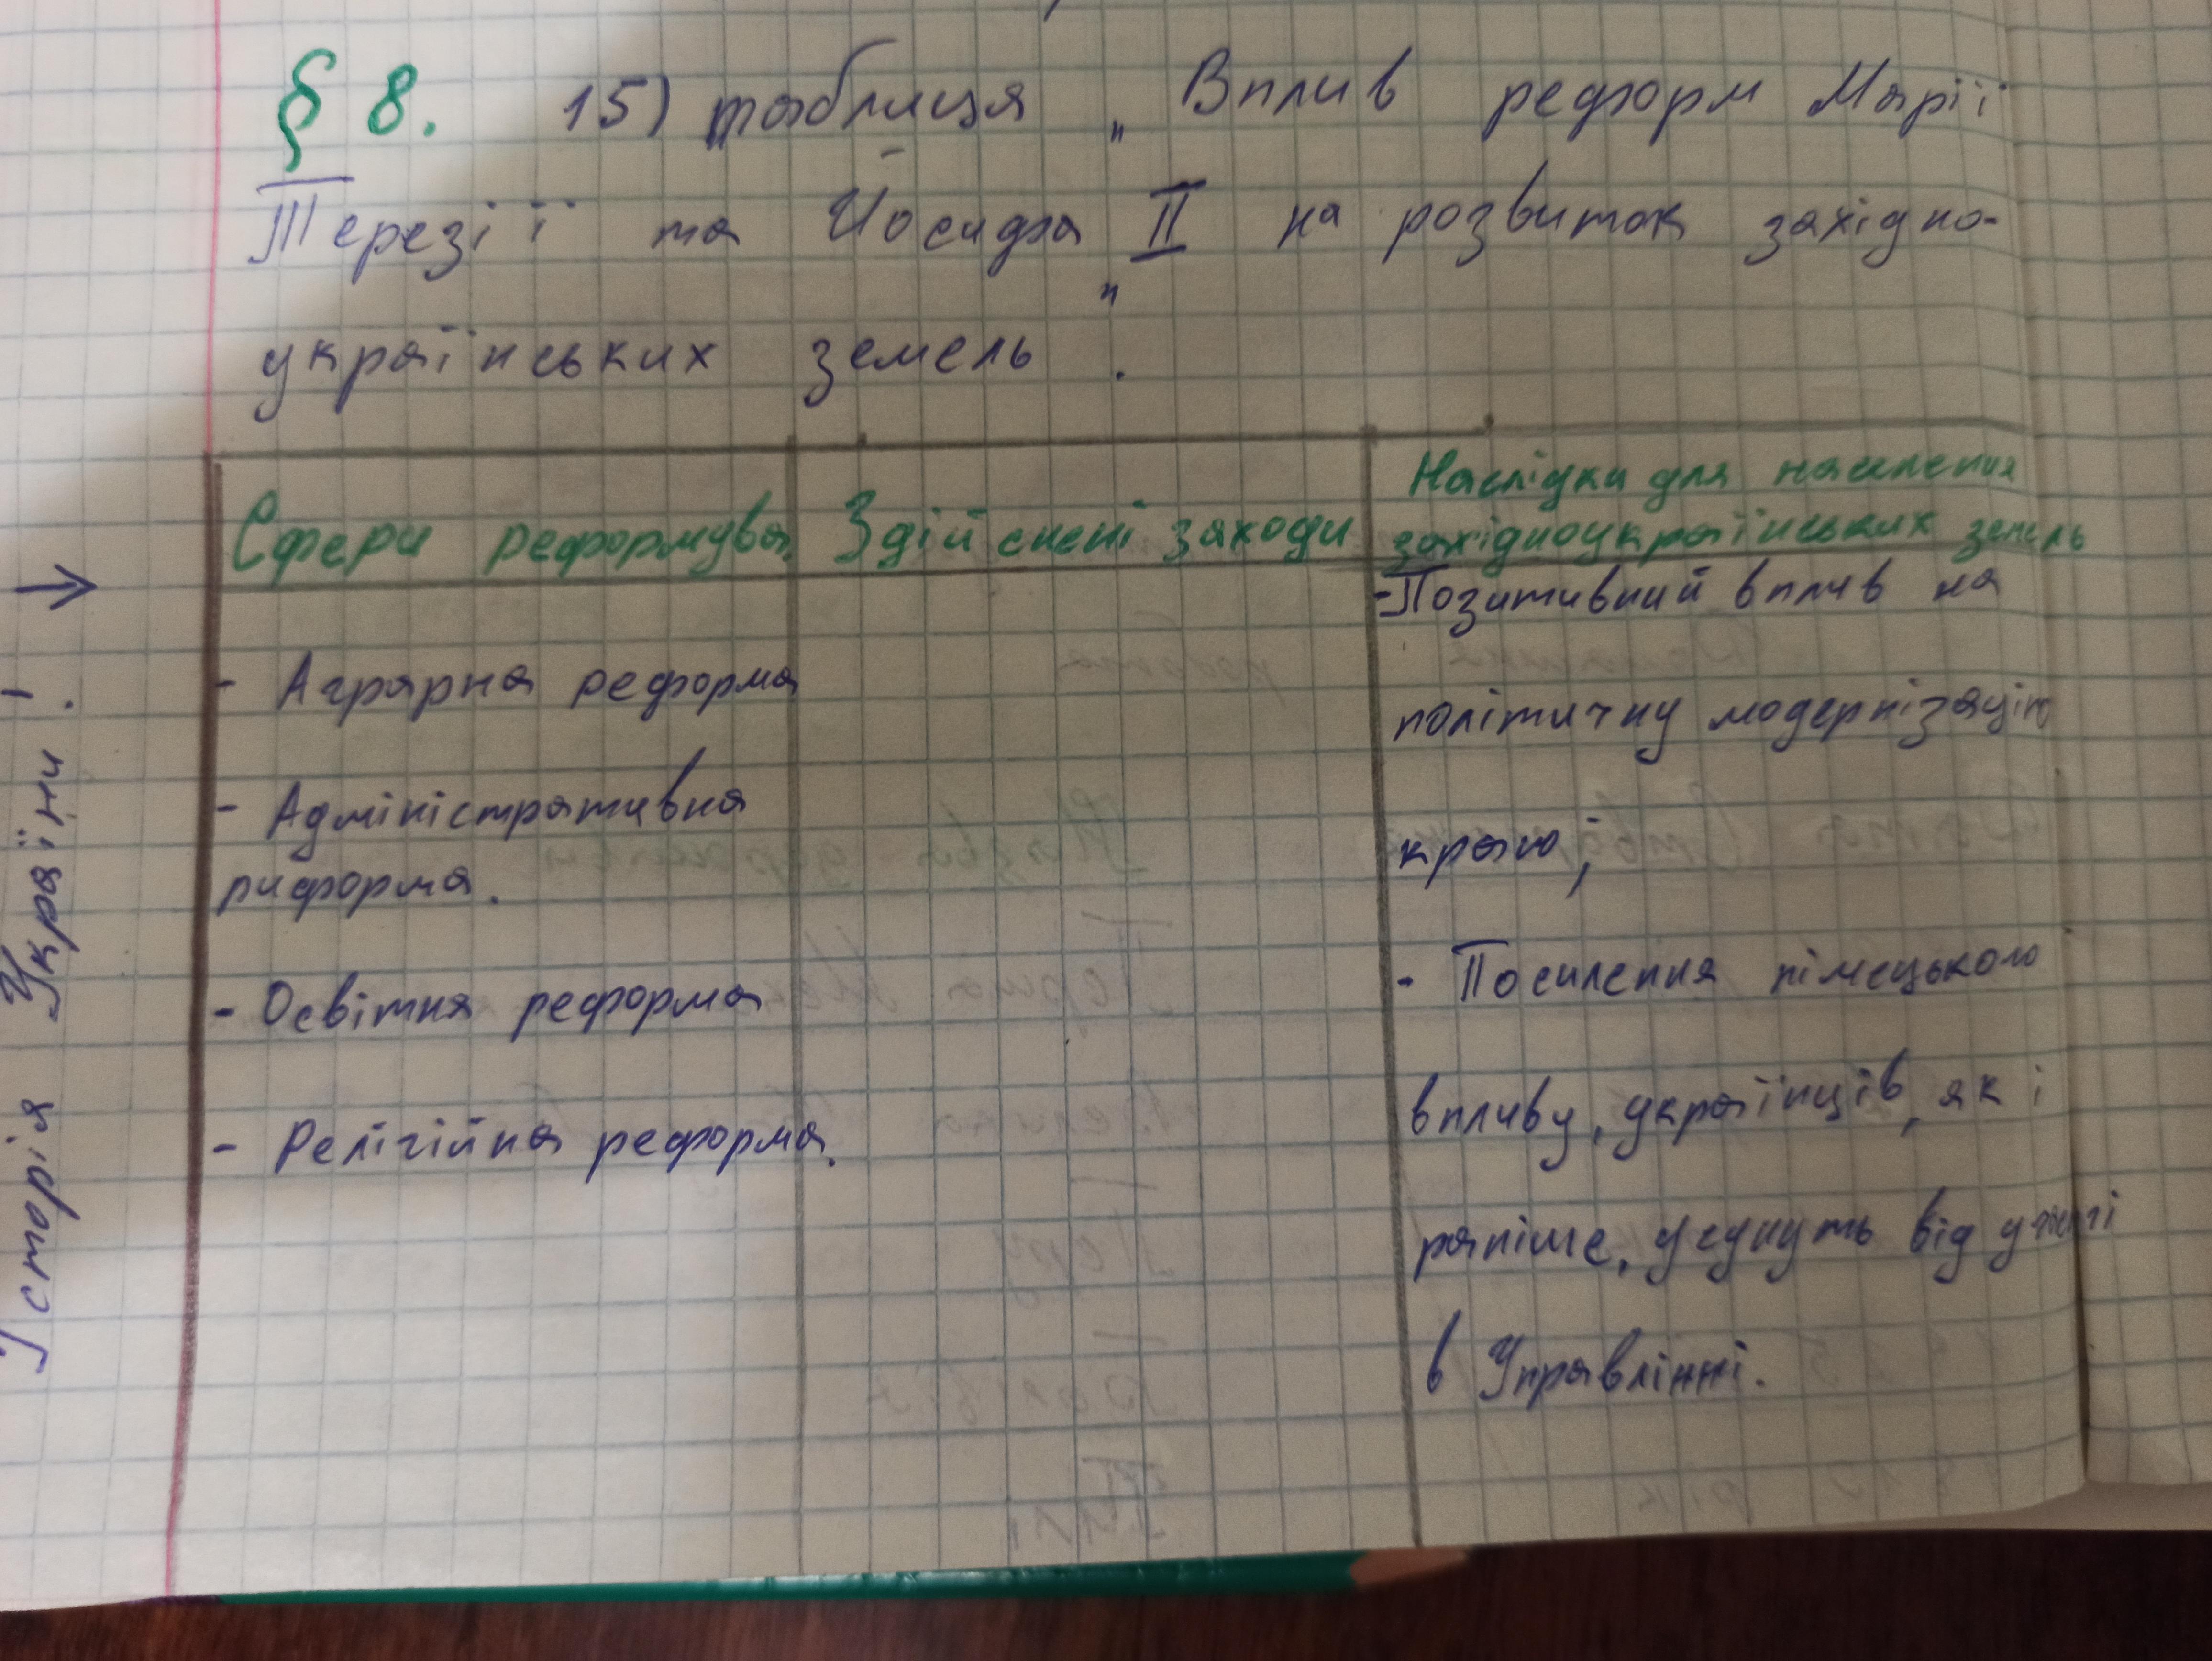 § 8. 15) таблиця „Вплив реформ Марії
Терезії та Йосифа II на розвиток західно-
українських земель".
Сфери реформува.
Здійснені заходи
Наслідки для населення
західноукраїнських земель
- Аграрна реформа
- Адміністративна
риформа.
- Освітня реформа
- Релігійна реформа.
-Позитивний вплив на
політичну модернізацію
краю;
- Посилення німецького
впливу, українців, як і
раніше, усунуть від участі
в Управлінні.
Історія України!